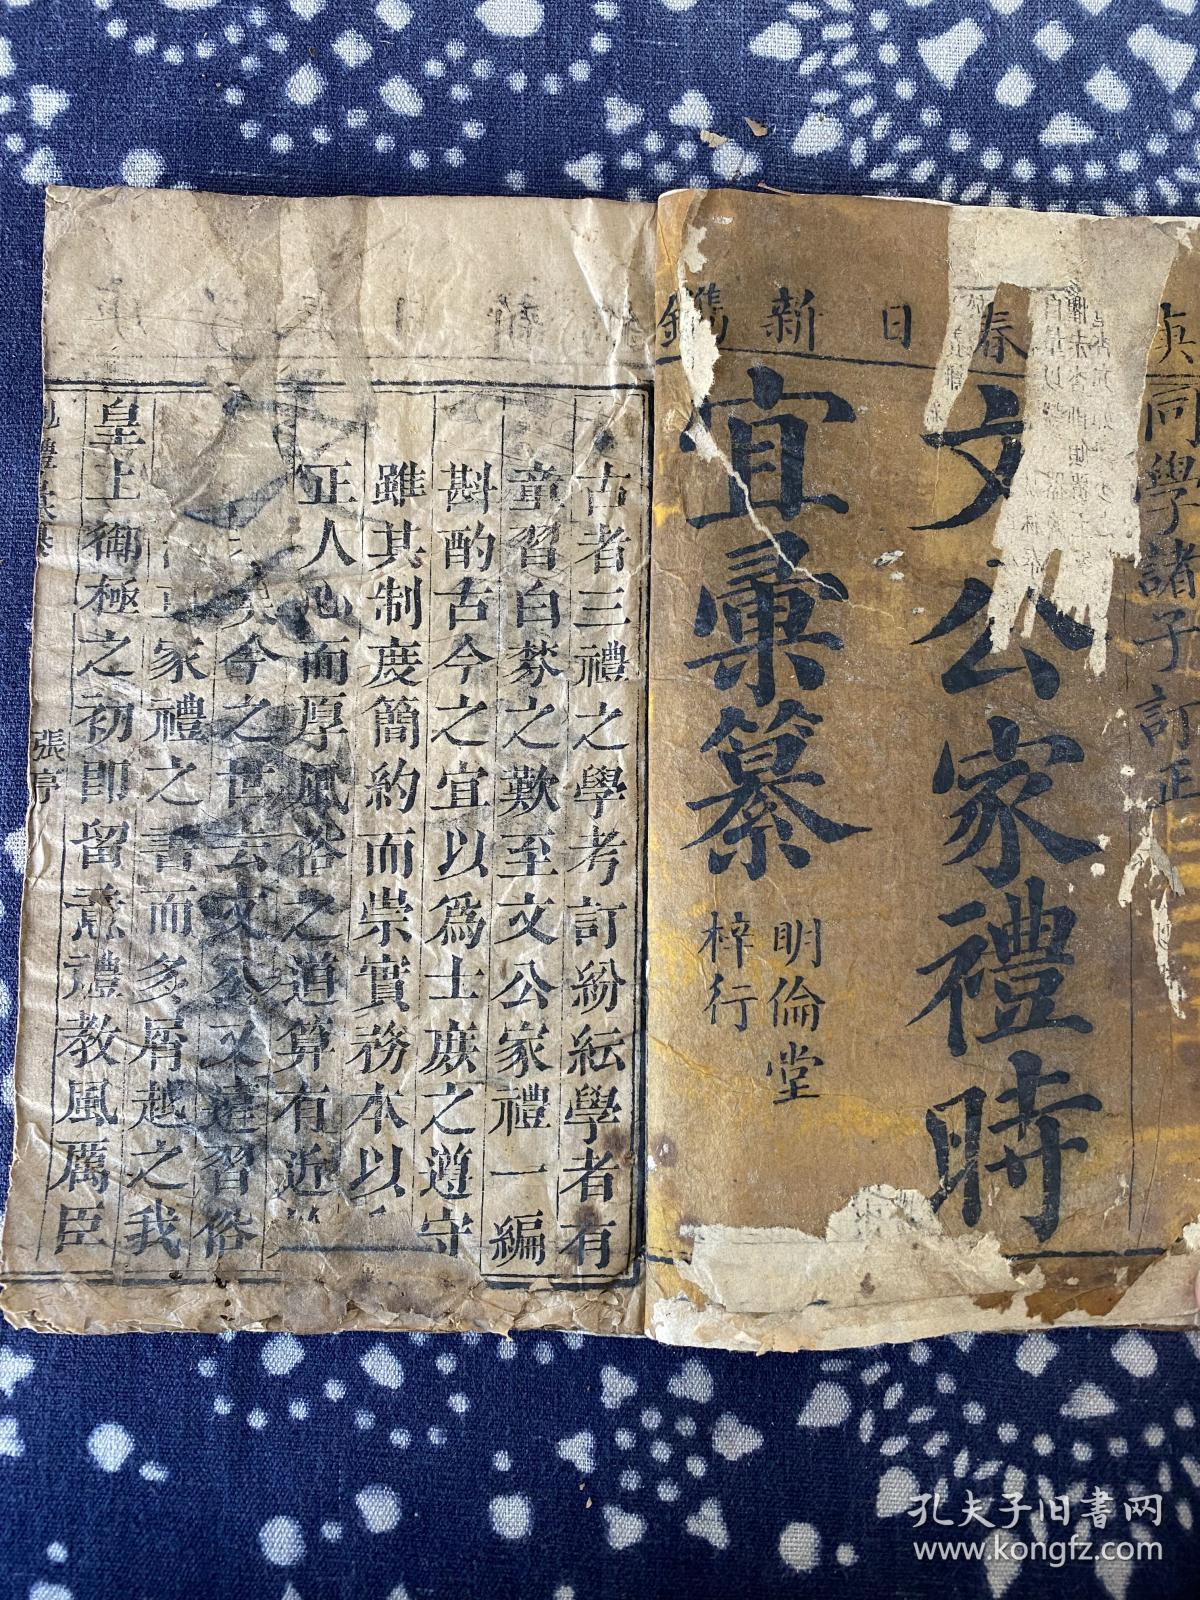 春日新鐫
同學諸子訂正
文公家禮時
宜彙纂
明倫堂
梓行
古者三禮之學考訂紛紜學者有
童習白芬之歎至文公家禮一編
斟酌古今之宜以爲士庻之遵守
雖其制度簡約而崇實務本以
正人心而厚風俗之道算有近
今之世去文公又遠習俗
家禮之書而多屑越之我
皇上御極之初即留意禮教風厲臣
張序
孔夫子旧書网
www.kongfz.com